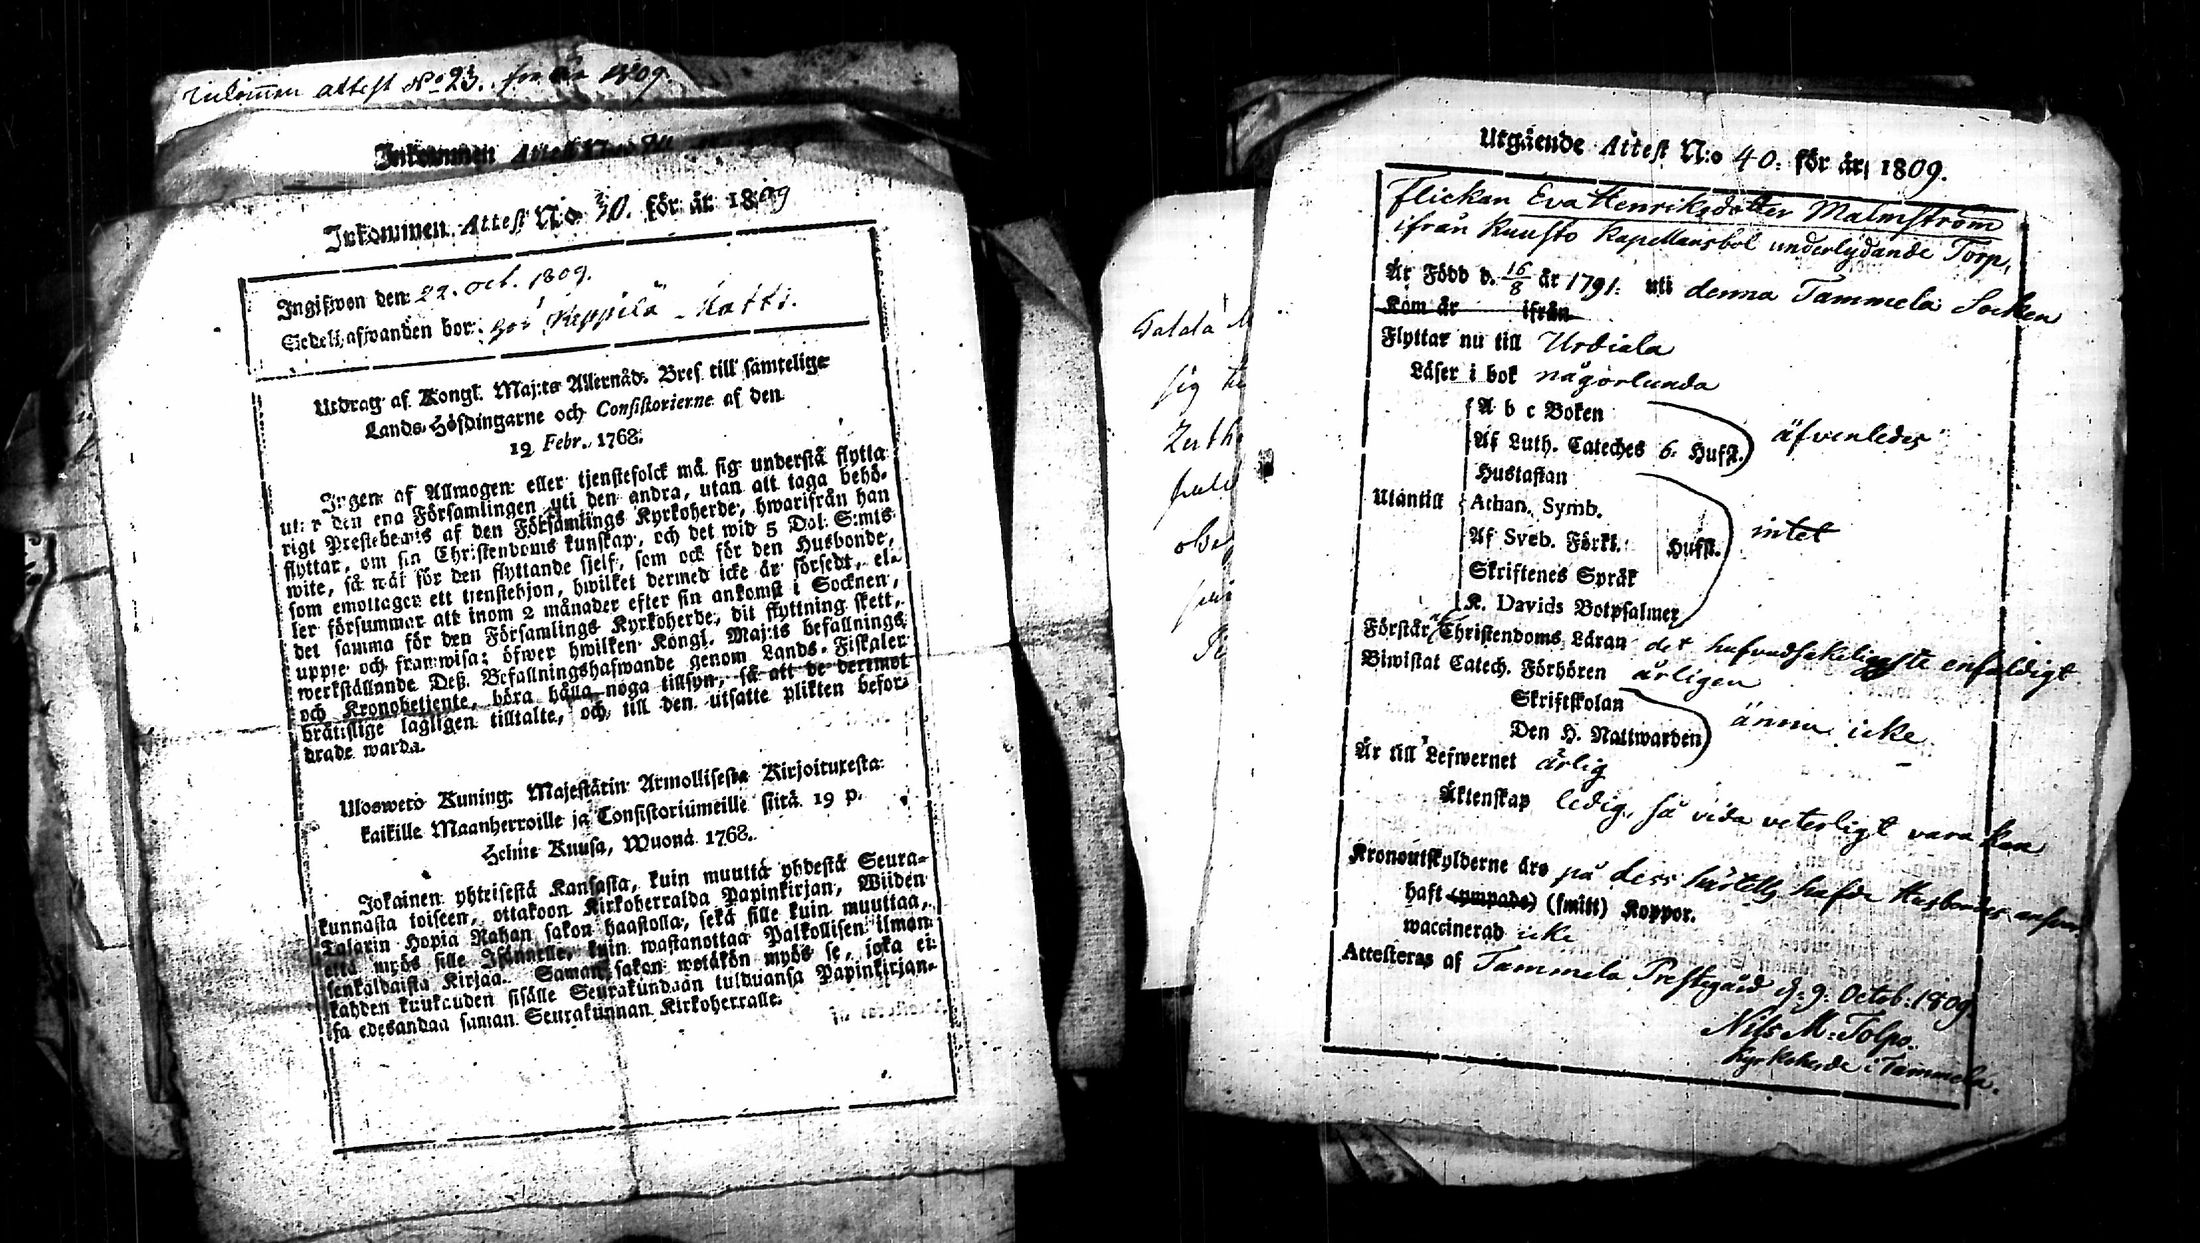 Inkom̄en attest No 23. för år 1809.
Inkommen Attest N:o
Inkommen Attest N:o 30. för år 1809
Ingifwen den 22. Oct. 1809.
Sedelhafwanden bor: hos Keppilä Matti.
Utdrag af Kongl. Maj:ts Allernåd: Bref till samtelige
Lands-Höfdingarne och Consistorierne af den
19 Febr. 1768:
Ingen af Allmogen eller tjenstefolck må sig understå flytta
utur den ena Församlingen uti den andra, utan att taga behö-
rigt Prestebewis af den Församlings Kyrkoherde, hwarifrån han
flyttar, om sin Christendoms kunskap, och det wid 5 Dal. S:mts
wite, så wäl för den flyttande sjelf, som ock för den Husbonde,
som emottager ett tjenstehjon, hwilket dermed icke är försedt, el-
ler försummar att inom 2 månader efter sin ankomst i Socknen,
det samma för den Församlings Kyrkoherde, dit flyttning skett,
uppte och framwisa: öfwer hwilken Kongl. Maj:ts befallnings
werkställande Deß Befallningshafwande genom Lands-Fiskaler
och Kronobetjente, böra hålla noga tillsyn, så att de deremot
brottslige lagligen tilltalte, och till den utsatte plikten befor-
drade warda.
Uloswето Kuning: Majestätin Armollisesta Kirjoituxesta
kaikille Maanherroille ja Consistoriumeille siitä 19 p.
Helme Kuusa, Wuona 1768.
Jokainen yhteisestä Kansasta, kuin muuttä yhdestä Seura-
kunnasta toiseen, ottakoon Kirkoherralda Papinkirjan, Wiiden
Talarin Hopia Rahan sakon haastolla, sekä sille kuin muuttaa,
että myös sille Isännelle, kuin wastanottaa Palkollisen ilman
senkaldaista Kirjaa. Saman sakon wetäkön myös se, joka ei
kahden kuukauden sisälle Seurakundaan tulduansa Papinkirjan-
sa edesandaa saman Seurakunnan Kirkoherralle.
Utgående Attest N:o 40. för år 1809.
Flickan Eva Henriksdotter Malmström
ifrån Kuusto Kapellansbol underlydande Torp,
Är Född d. 16/8 år 1791. uti denna Tammela Socken
Kom år ifrån
Flyttar nu till Urdiala
Läser i bok någorlunda
A b c Boken
Af Luth. Cateches 6. Hufst. äfvenledes
Hustaflan
Utantill Athan. Symb.
Af Sveb. Förkl. Hufst. intet
Skriftenes Språk
K. Davids Botpsalmer
Förstår Christendoms Läran det hufvudsakeligste enfaldigt
Biwistat Catech. Förhören årligen
Skriftskolan
Den H. Nattwarden ännu icke
Är till Lefwernet ärlig
Äktenskap ledig, så vida veterligt vara kan
Kronoutskylderne äro på dess
haft (ympade) (smitt) Koppor.
waccinerad icke
Attesteras af Tammela Prestegård d: 9. Octob: 1809
Nils M: Tolpo.
Kyrkoherde i Tammela.